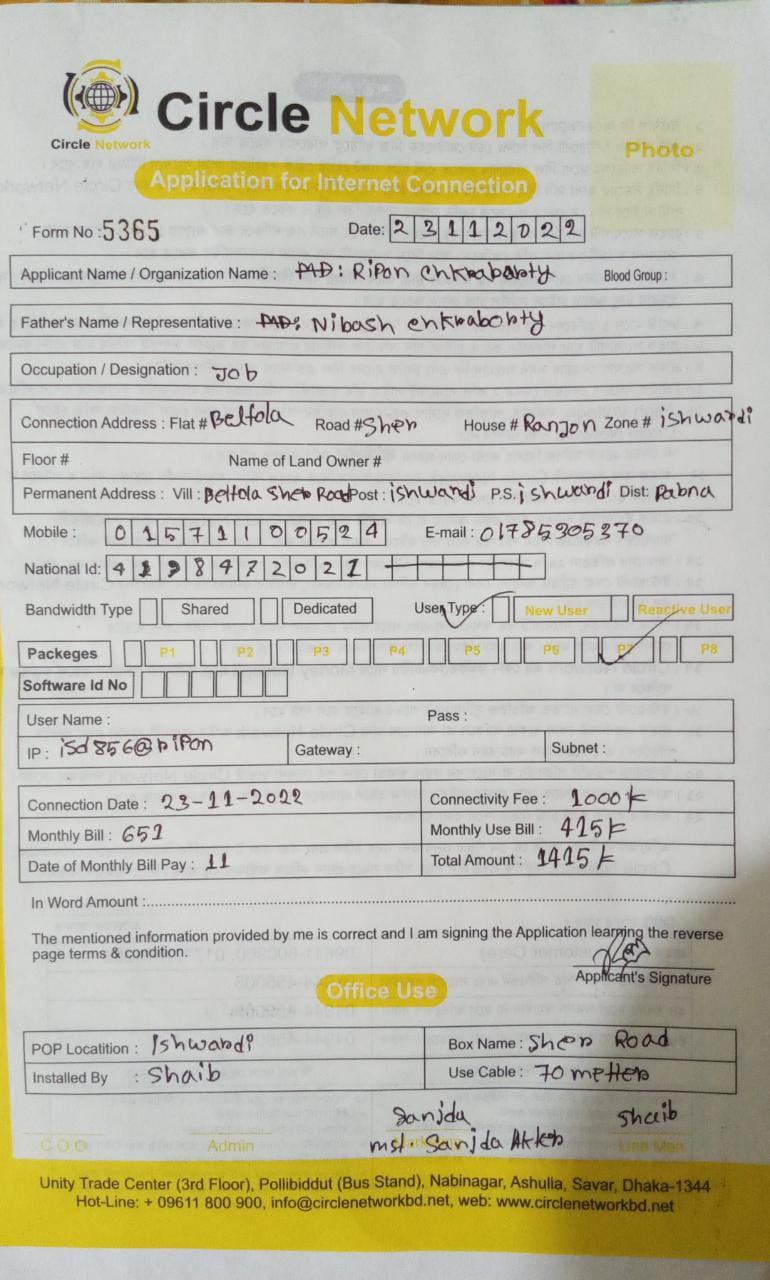 Circle Network
Circle Network
Photo
Application for Internet Connection
Form No : 5365 Date: 23112022
Applicant Name / Organization Name : MD: Ripon chkraborty Blood Group :
Father's Name / Representative : MD: Nibash chkraborty
Occupation / Designation : Job
Connection Address : Flat # Beltola Road # Sher House # Ranjon Zone # ishwardi
Floor # Name of Land Owner #
Permanent Address : Vill : Beltola Sher Road Post : ishwardi P.S. ishwardi Dist: Pabna
Mobile : 01571100524 E-mail : 01785305370
National Id: 4198472021
Bandwidth Type Shared Dedicated User Type : New User Reactive User
Packeges P1 P2 P3 P4 P5 P6 P7 P8
Software Id No
User Name : Pass :
IP : isd856@ripon Gateway : Subnet :
Connection Date : 23-11-2022 Connectivity Fee : 1000
Monthly Bill : 651 Monthly Use Bill : 415
Date of Monthly Bill Pay : 11 Total Amount : 1415
In Word Amount :
The mentioned information provided by me is correct and I am signing the Application learning the reverse
page terms & condition.
Applicant's Signature
Office Use
POP Locatition : Ishwardi Box Name : Sher Road
Installed By : Shaib Use Cable : 70 metter
Sanjda Shaib
mst. Sanjda Akter
C.O.O Admin Line Man
Unity Trade Center (3rd Floor), Pollibiddut (Bus Stand), Nabinagar, Ashulia, Savar, Dhaka-1344
Hot-Line: + 09611 800 900, info@circlenetworkbd.net, web: www.circlenetworkbd.net